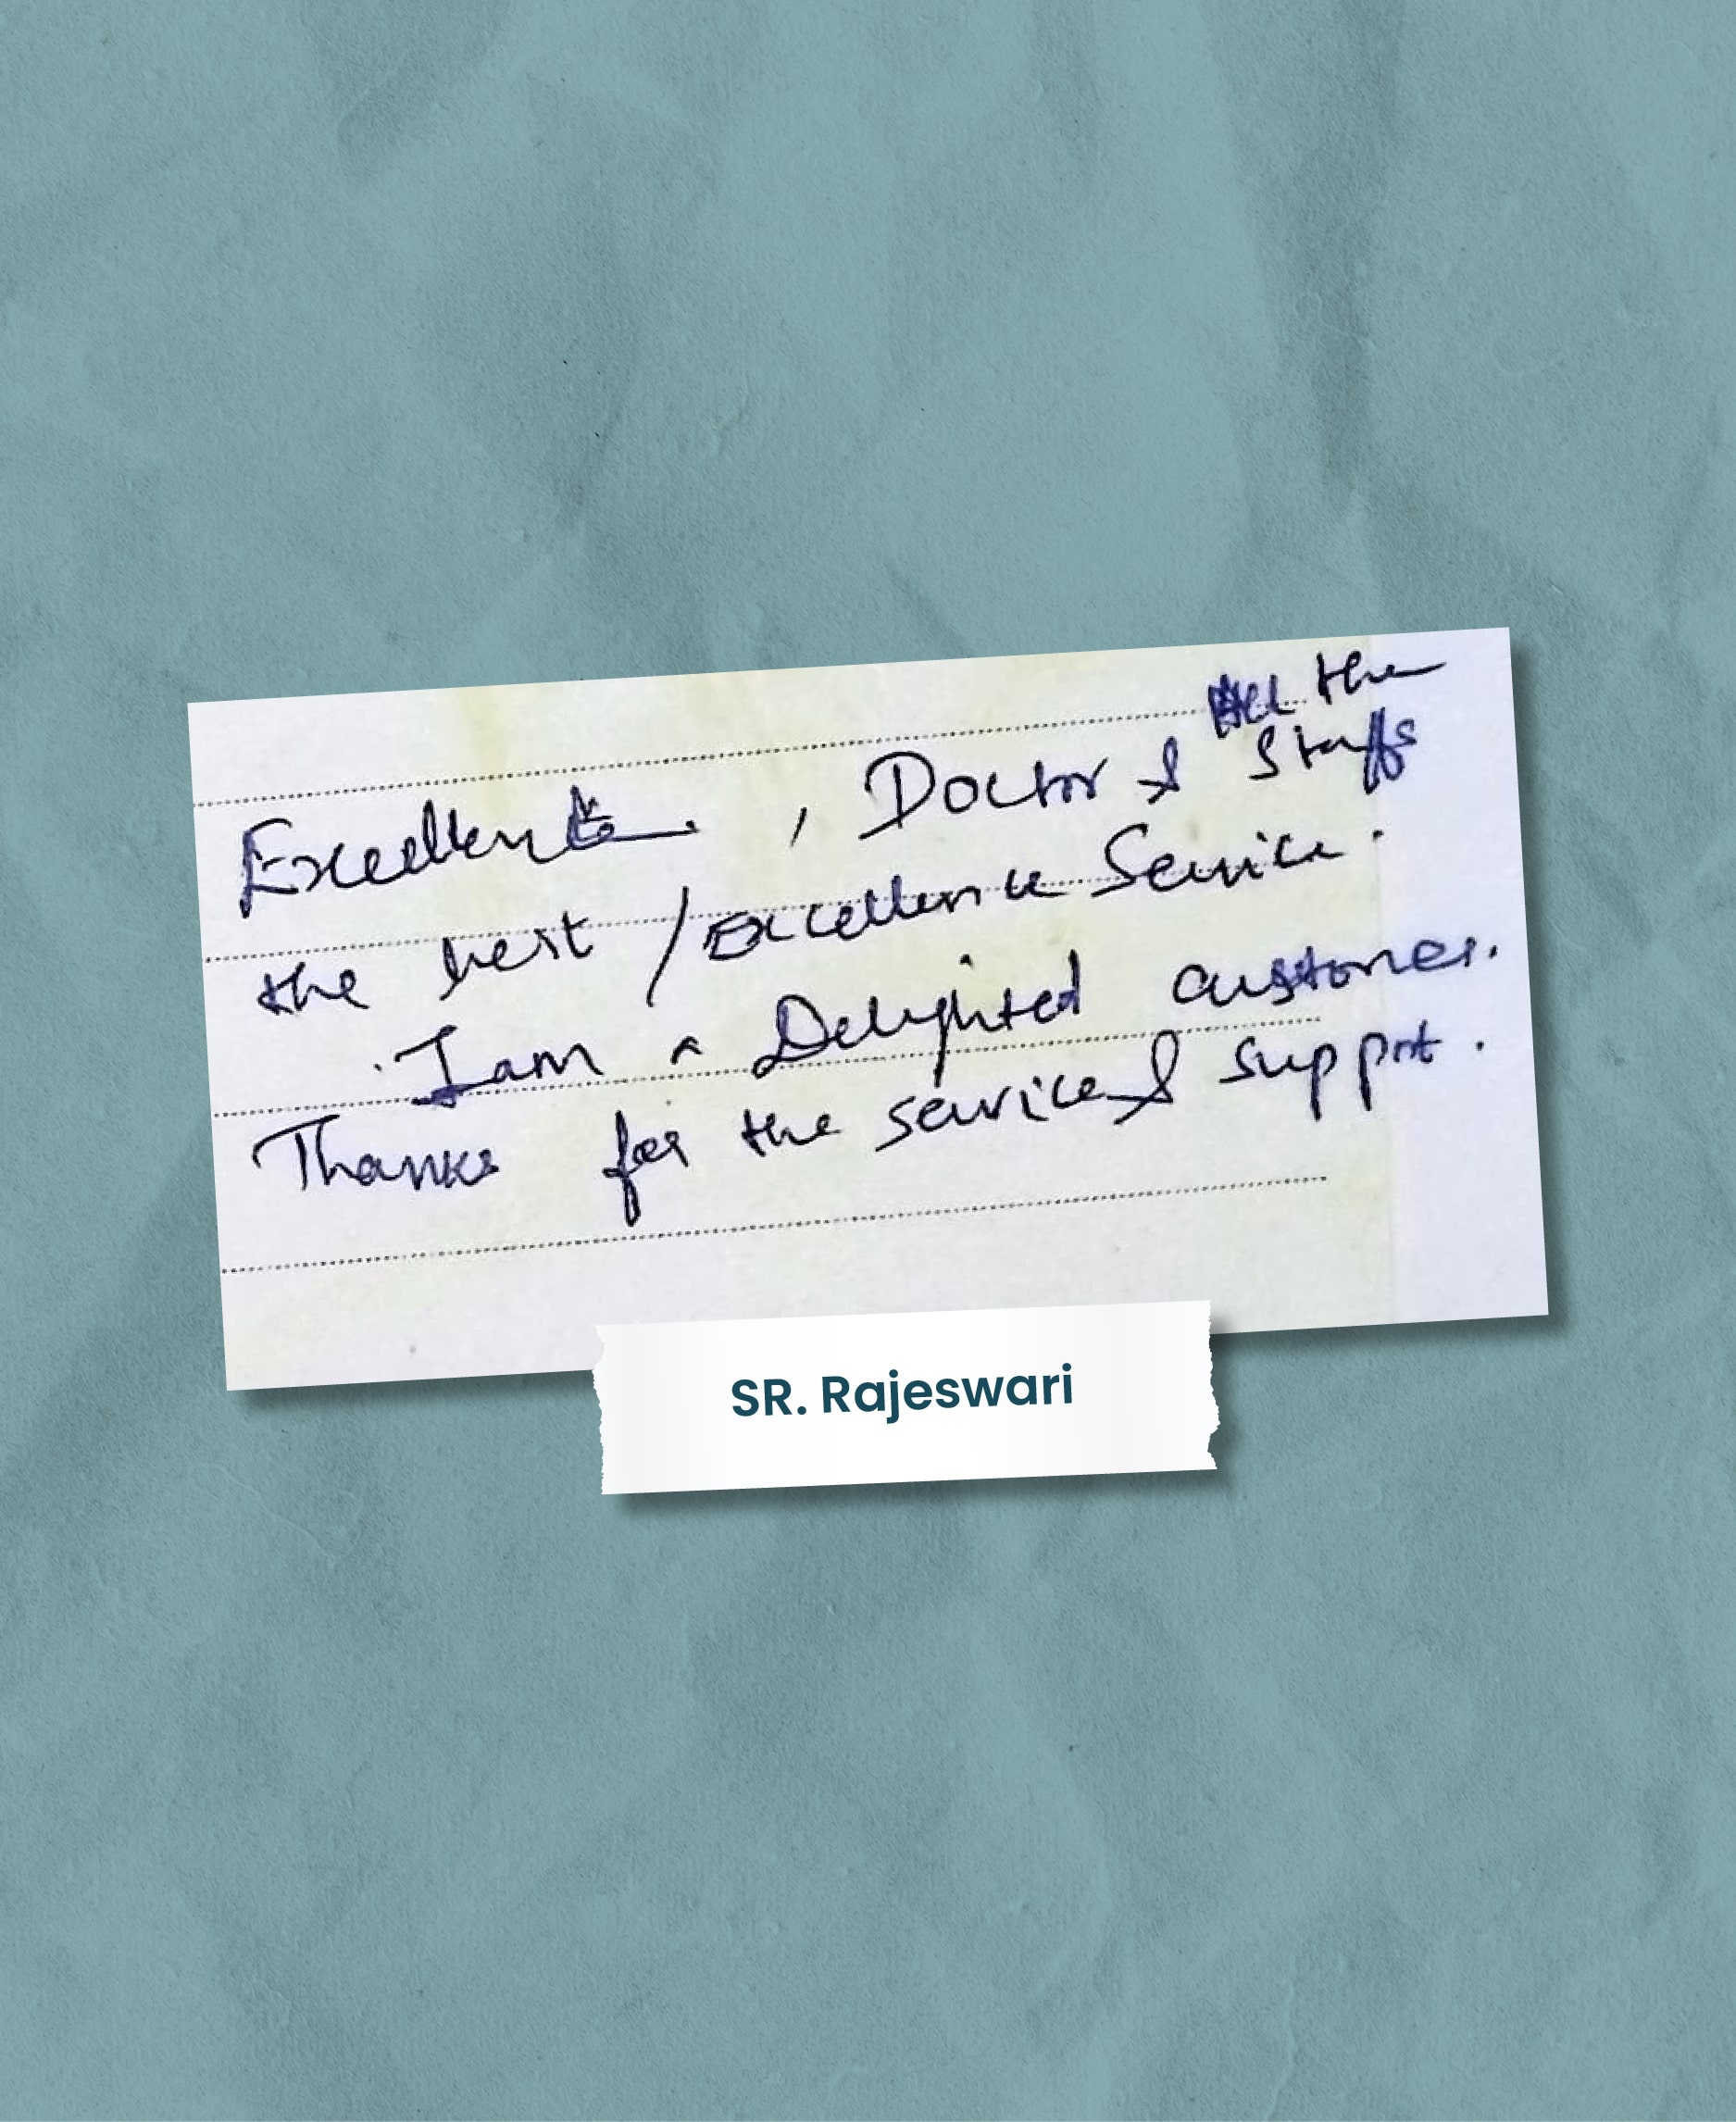 Excellent, Doctor & All the Staffs
the best / Excellence Service.
I am a Delighted customer.
Thanks for the service & support.
SR. Rajeswari